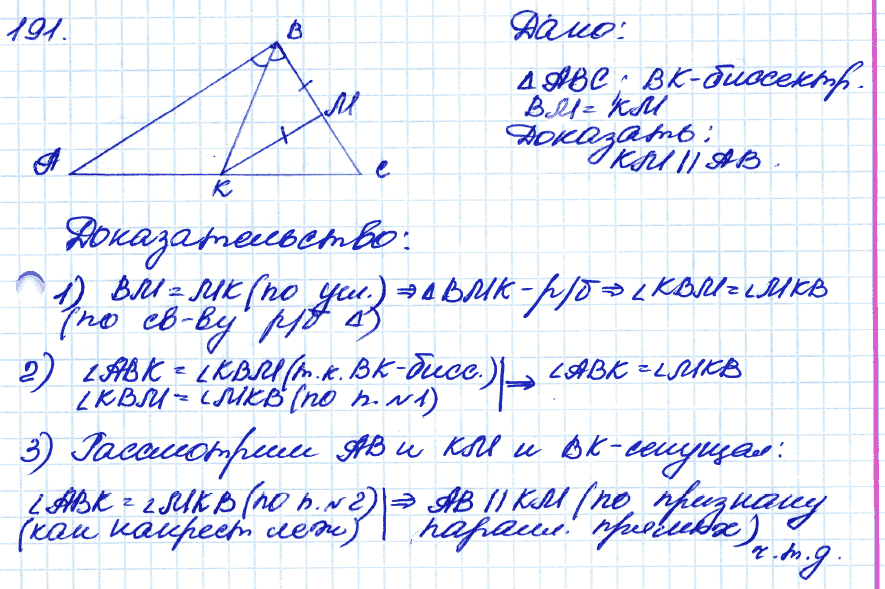 191.
B
M
A
K
C
Дано:
△ABC; BK-биссектр.
BM = KM
Доказать:
KM || AB.
Доказательство:
1) BM = MK (по усл.) ⇒ △BMK - р/б ⇒ ∠KBM = ∠MKB
(по св-ву р/б △)
2) ∠ABK = ∠KBM (т.к. BK-бисс.) | ⇒ ∠ABK = ∠MKB
∠KBM = ∠MKB (по п.№1)
3) Рассмотрим AB и KM и BK-секущая:
∠ABK = ∠MKB (по п.№2) | ⇒ AB || KM (по признаку
(как накрест леж) | паралл. прямых)
ч.т.д.